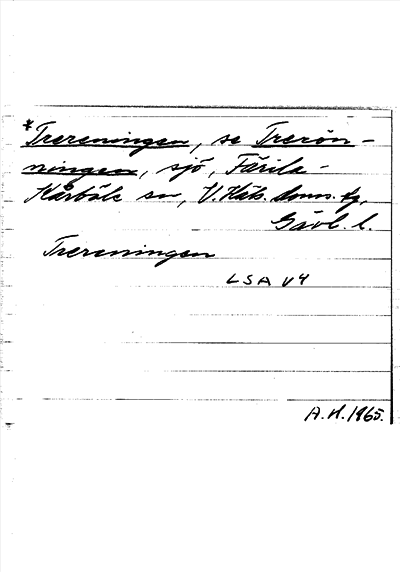 *Trereningen, se Trerön-
ningen, sjö, Färila-
Kårböle sn, V. Häls. doms. fg,
Gävl. l.
Trereningen
LSA V4
A. H. 1965.